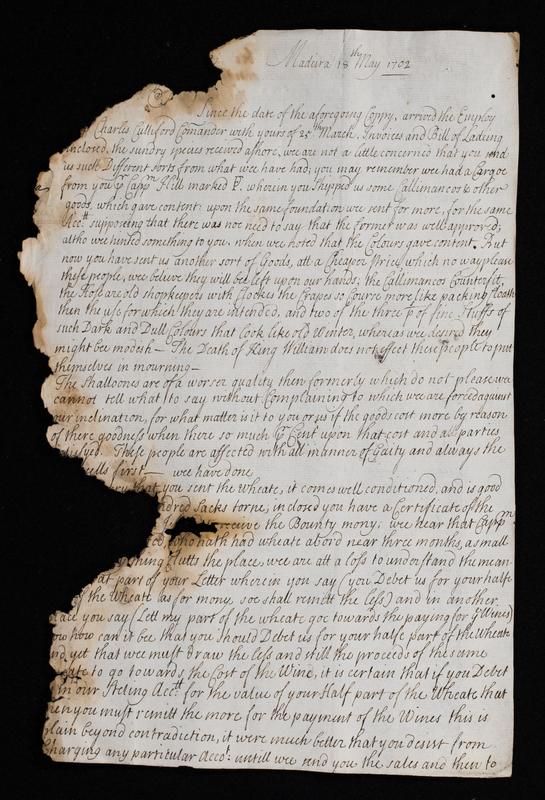 Madeira 18th May 1702
Since the date of the aforegoing Coppy, arrived the Employ
Charles Culliford Comander with yours of 25th March, Invoices and Bill of Ladeing
inclosed, the sundry species received ashore, wee are not a little concerned that you send
us such Different sorts from what we have had; you may remember we had a Cargoe
from you p Capp Hill marked P. wherein you shipped us some Callimancos & other
goods, which gave content: upon the same foundation we sent for more, for the same
Acctt supposeing that there was noe need to say that the former was well approved;
altho we hinted something to you, when we noted that the Colours gave content. But
now you have sent us another sort of Goods, att a Cheaper Price, which no way please
these people, wee believe they will bee left upon our hands; the Callimancos Countrofit,
the Hose are old shopkeepers with Clockes the Crapes so Course more like packing Cloath
then the use for which they are intended, and two of the three ps of fine Stuffs of
such Dark and Dull Colours that Look like old Winter, whereas we desired they
might bee modesh — The Death of King William does not effect these people to putt
themselves in mourning —
The Shalloones are of a worser quality then formerly which do not please we
cannot tell what to say without Complaining to which we are forced against
our inclination, for what matter is it to you or us if the goods cost more by reason
of there goodness when there so much p Cent upon that cost and all parties
These people are affected with all manner of Gaity and always the
sells first — we have done
that you sent the Wheate, it comes well conditioned, and is good
Sacks torne, inclosed you have a Certificate of the
receive the Bounty mony; we hear that Capp
who hath had wheate abord near three months, a small
thing Glutts the place, wee are att a loss to understand the mean
at part of your Letter wherein you say (you Debet us for your halfe
of the Wheate as for mony, soe shall remitt the less) and in another
place you say (Lett my part of the wheate goe towards the paying for ye Wines)
now how can it bee that you should Debet us for your halfe part of the Wheate
and yet that wee must draw the less and still the proceeds of the same
to go towards the Cost of the Wine, it is certain that if you Debet
in our Sterling Acctt for the value of your Half part of the Wheate that
then you must remitt the more for the payment of the Wines this is
plain beyond contradiction, it were much better that you desist from
Charging any particular Accot: untill wee send you the sales and then to